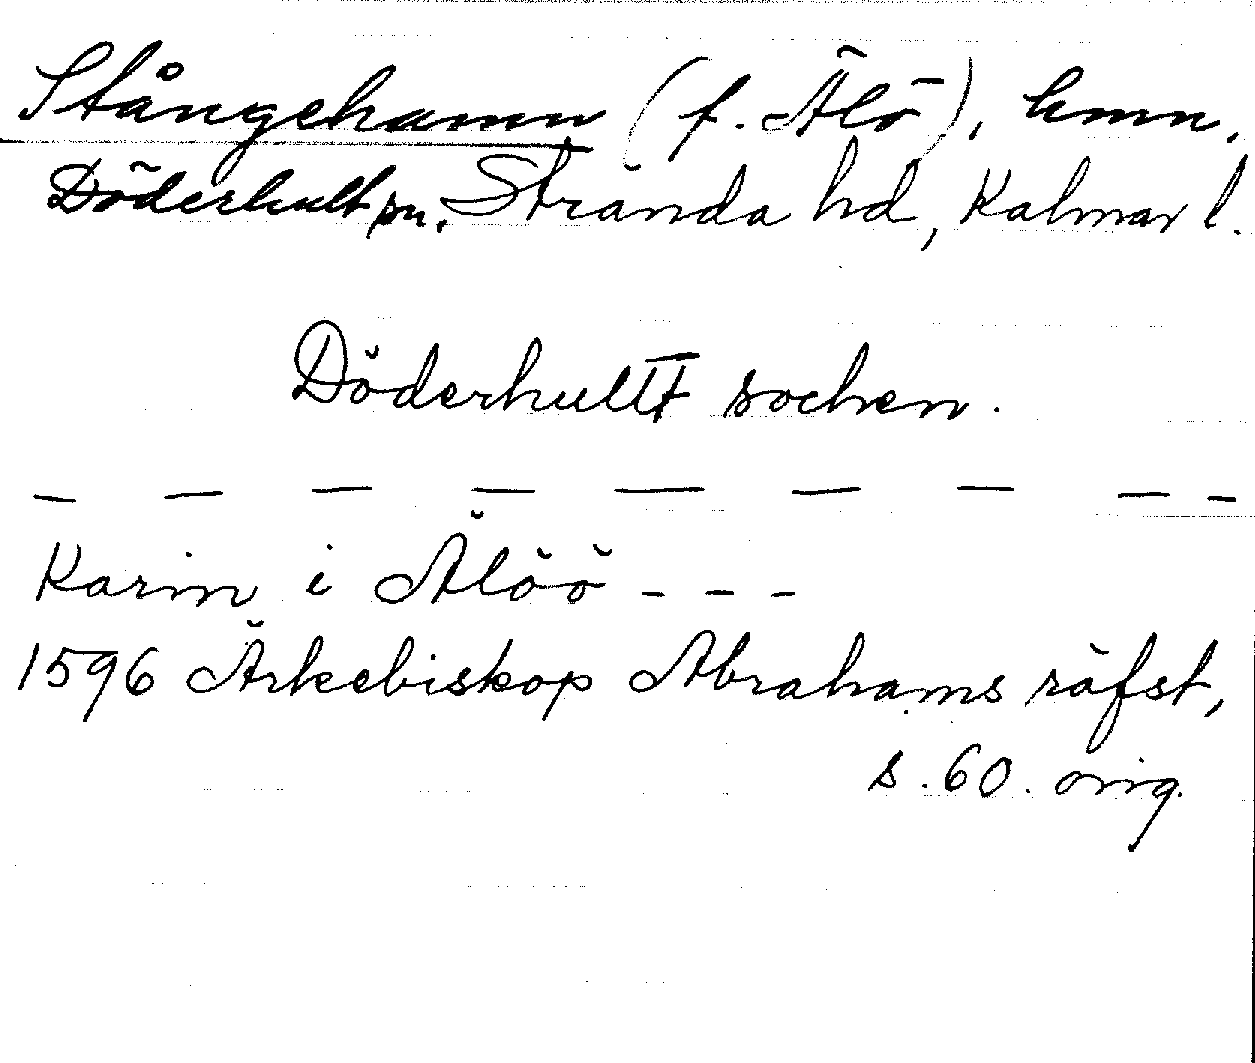 Stångehamn (f. Älö), hmn.
Döderhult sn. Stranda hd, Kalmar l.
Döderhullt sochen.
— — — — — — — — —
Karin i Älöö - - -
1596 Ärkebiskop Abrahams räfst,
s. 60. orig.